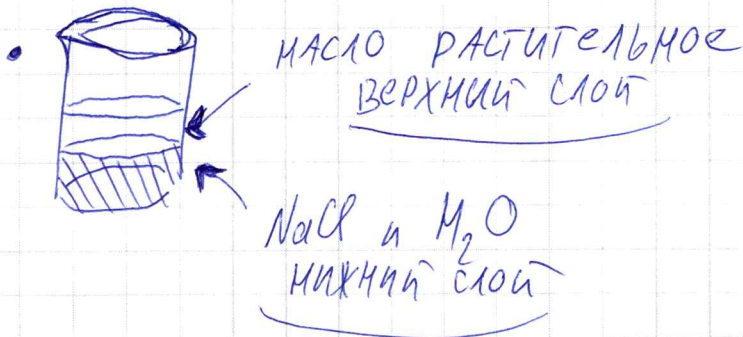 МАСЛО РАСТИТЕЛЬНОЕ
ВЕРХНИЙ СЛОЙ
NaCl и H₂O
НИЖНИЙ СЛОЙ